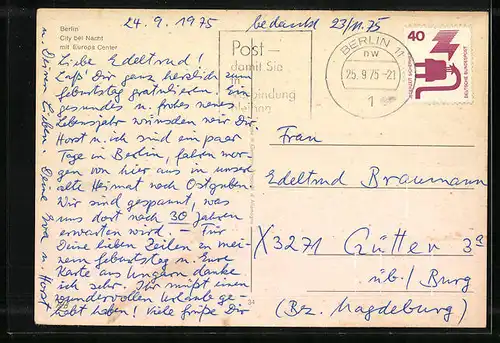 Berlin
City bei Nacht
mit Europa Center
24.9.1975
bedankt 23/11.75
Post –
damit Sie
in
Verbindung
bleiben
BERLIN 11
nw
25.9.75-21
1
40
DEUTSCHE BUNDESPOST
Liebe Edeltrud!
Laß' Dir ganz herzlich zum
Geburtstag gratulieren. Ein
gesundes u. frohes neues
Lebensjahr wünschen wir Dir.
Horst u. ich sind ein paar
Tage in Berlin, fahren mor-
gen von hier aus in unser
alte Heimat nach Ostguben.
Wir sind gespannt, was
uns dort nach 30 Jahren
erwarten wird. – Für
Deine lieben Zeilen zu mei-
nem Geburtstag u. Eure
Karte aus Ungarn danke
ich sehr. Ihr müßt einen
wundervollen Urlaub ge-
habt haben! Viele Grüße Dir
u. Deinen Lieben! Deine Eva u. Horst
Frau
Edeltrud Braumann
X3271 Gütter 3a
üb./ Burg
(Bez. Magdeburg)
34